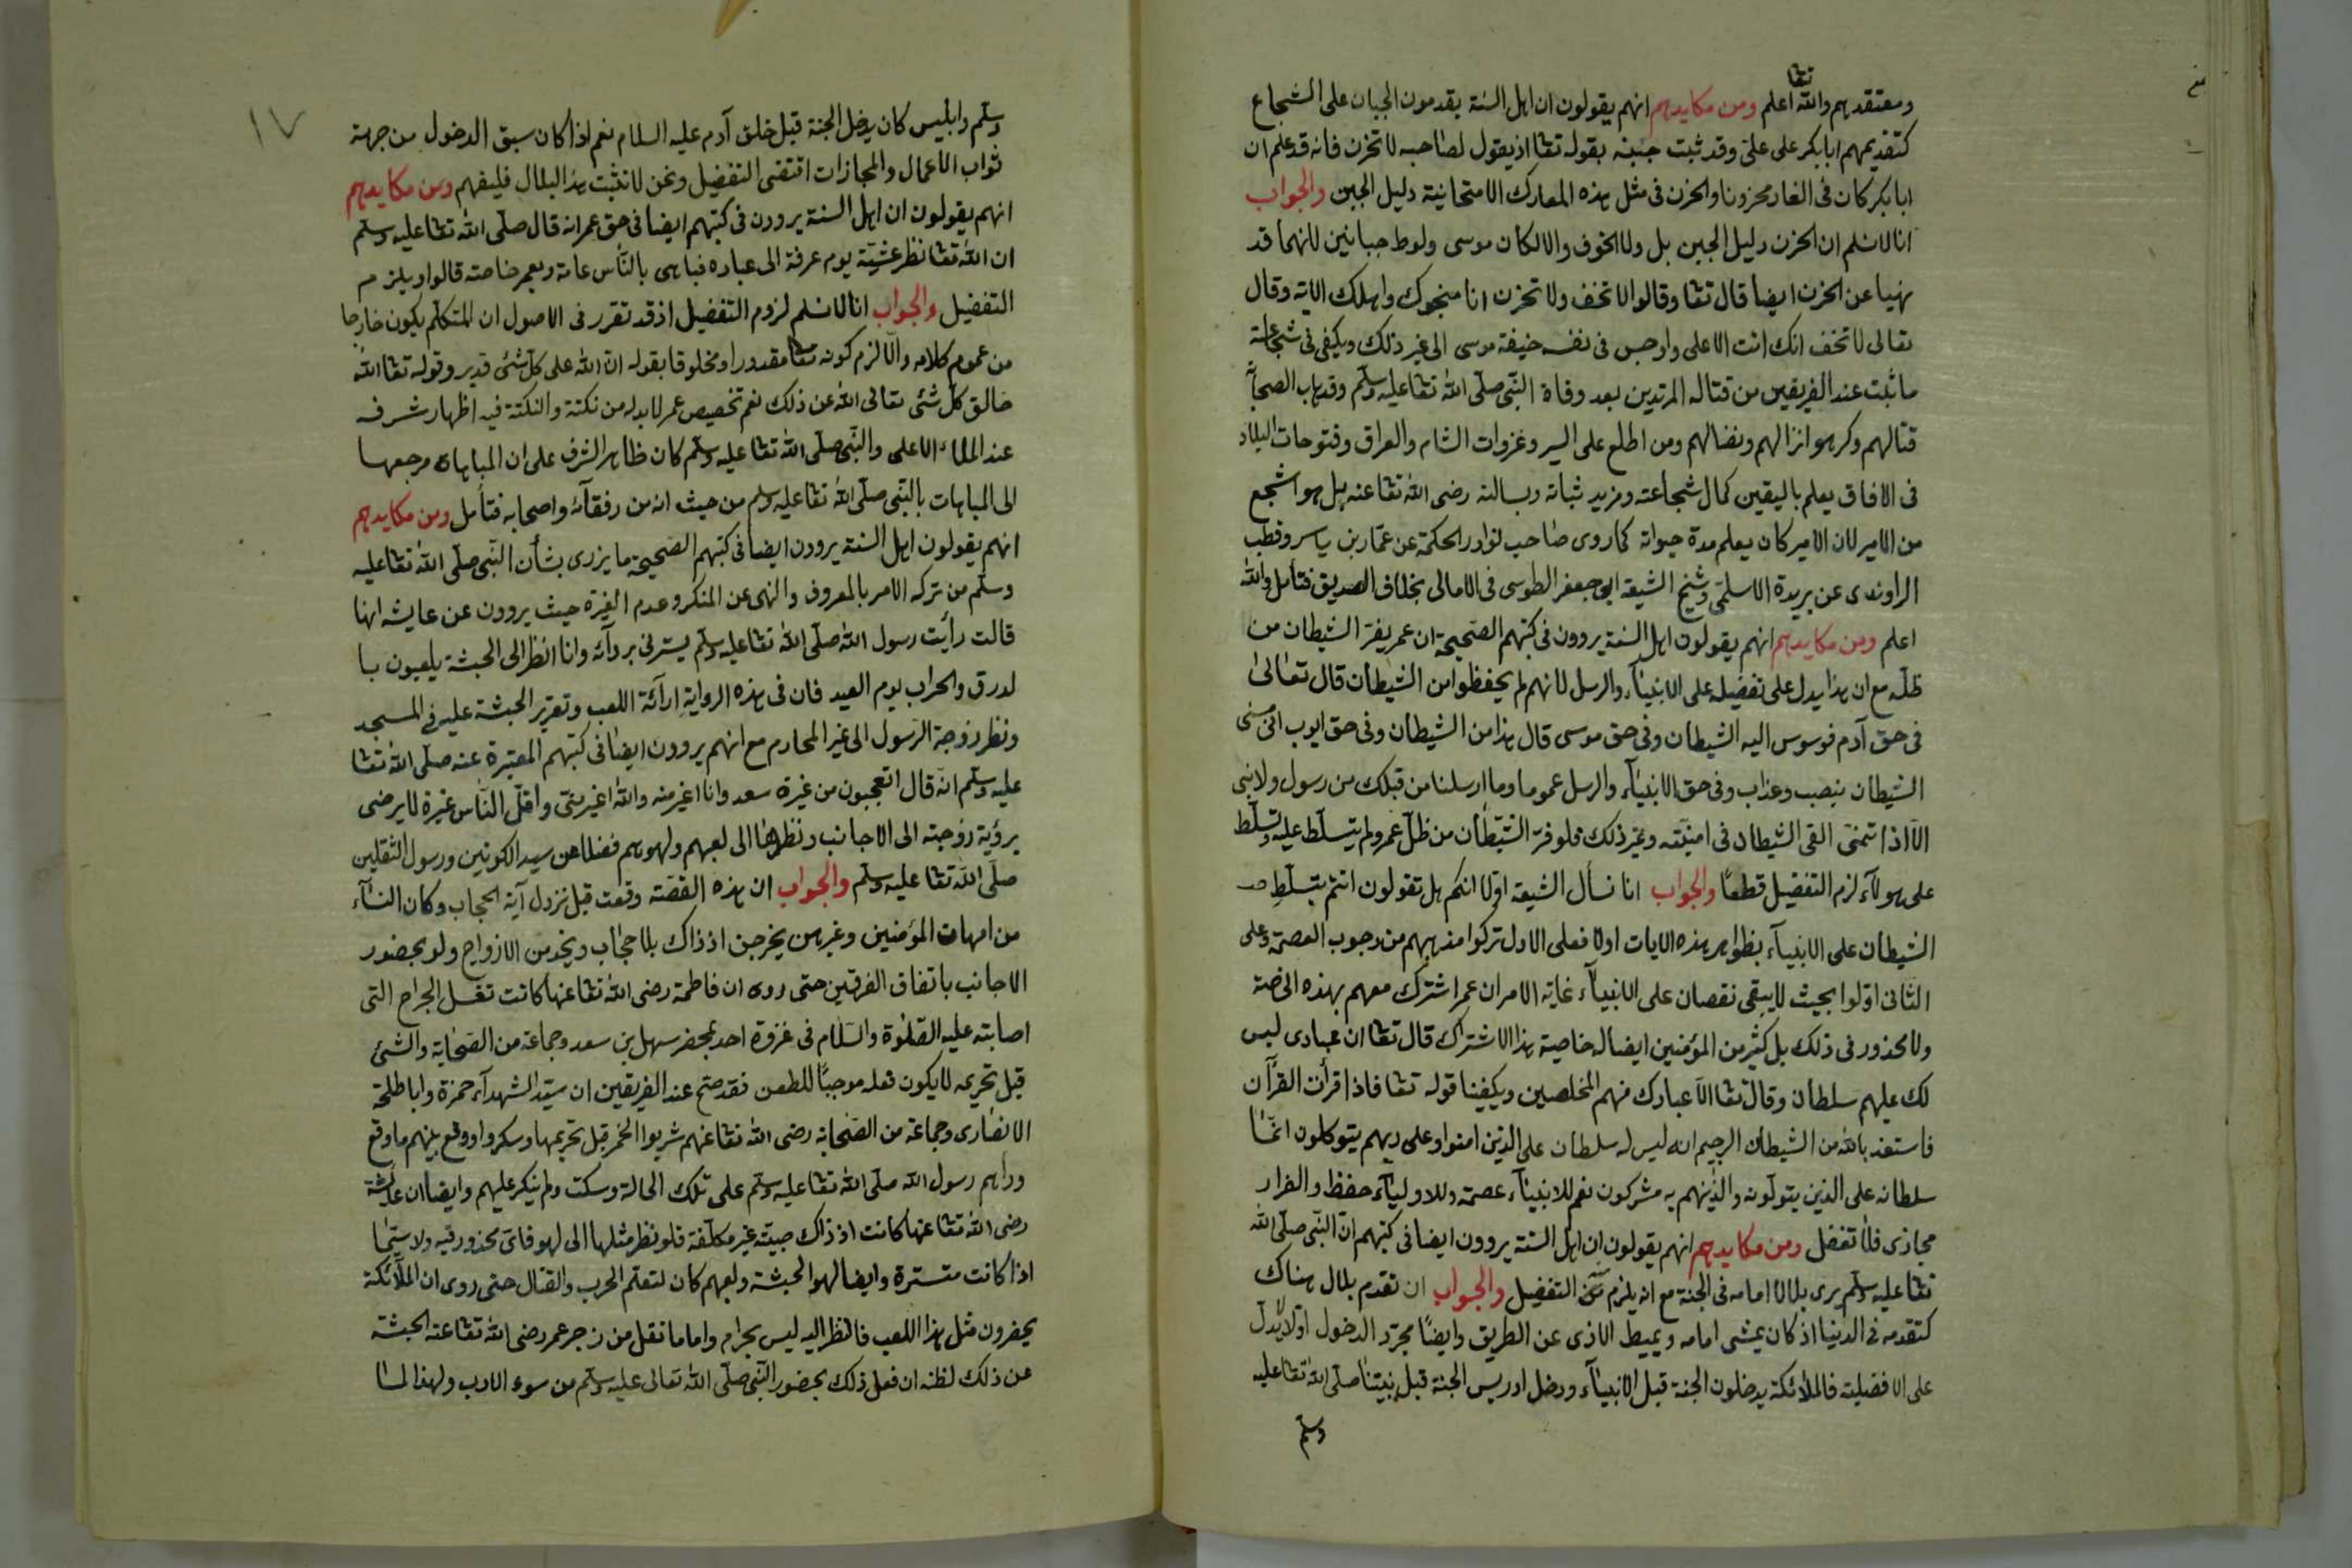 ومعتقدهم والله تعا اعلم ومن مكايدهم انهم يقولون ان اهل السنة يقدمون الجبان على الشجاع
كتقديمهم ابابكر على على وقد ثبت جبنه بقوله تعا اذ يقول لصاحبه لا تحزن فانه قد علم ان
ابا بكر كان فى الغار محزونا والحزن فى مثل هذه المعارك الامتحانية دليل الجبن والجواب
انا لا نسلم ان الحزن دليل الجبن بل ولا الخوف والا لكان موسى ولوط جبانين لانهما قد
نهيا عن الحزن ايضا قال تعا وقالوا لا تخف ولا تحزن انا منجوك واهلك الاية وقال
تعالى لا تخف انك انت الاعلى واوجس فى نفسه خيفة موسى الى غير ذلك ويكفى فى شجاعته
ما ثبت عند الفريقين من قتاله المرتدين بعد وفاة النبى صلى الله تعا عليه وسلم وقد هاب الصحابة
قتالهم وكرهوا نزالهم ونضالهم ومن اطلع على السير وغزوات الشام والعراق وفتوحات البلاد
فى الافاق يعلم باليقين كمال شجاعته ومزيد ثباته وبسالته رضى الله تعا عنه بل هو اشجع
من الامير لان الامير كان يعلم مدة حيوته كما روى صاحب نوادر الحكمة عن عمار بن ياسر وقطب
الراوندى عن بريدة الاسلمى وشيخ الشيعة ابى جعفر الطوسى فى الامالى بخلاف الصديق فتأمل والله
اعلم ومن مكايدهم انهم يقولون اهل السنة يروون فى كتبهم الصحيحة ان عمر يفر الشيطان من
ظله مع ان هذا يدل على تفضيله على الانبياء والرسل لانهم لم يحفظوا من الشيطان قال تعالى
فى حق آدم فوسوس اليه الشيطان وفى حق موسى قال هذا من الشيطان وفى حق ايوب انى مسنى
الشيطان بنصب وعذاب وفى حق الانبياء والرسل عموما وما ارسلنا من قبلك من رسول ولا نبى
الا اذا تمنى القى الشيطان فى امنيته وغير ذلك فلو فر الشيطان من ظل عمر ولم يتسلط عليه وتسلط
على هولاء لزم التفضيل قطعا والجواب انا نسأل الشيعة اولا انكم هل تقولون انتم بتسلط
الشيطان على الانبياء بظواهر هذه الايات اولا فعلى الاول تركوا مذهبهم من وجوب العصمة وعلى
الثانى اولوا بحيث لا يبقى نقصان على الانبياء غاية الامر ان عمر اشترك معهم بهذه الخاصة
ولا محذور فى ذلك بل كثير من المؤمنين ايضا له خاصية هذا الاشتراك قال تعا ان عبادى ليس
لك عليهم سلطان وقال تعا الا عبادك منهم المخلصين ويكفينا قوله تعا فاذا قرأت القرآن
فاستعذ بالله من الشيطان الرجيم انه ليس له سلطان على الذين امنوا وعلى ربهم يتوكلون انما
سلطانه على الذين يتولونه والذينهم به مشركون نعم للانبياء عصمة وللاولياء حفظ والفرار
مجازى فلا تفضل ومن مكايدهم انهم يقولون ان اهل السنة يروون ايضا فى كتبهم ان النبى صلى الله
تعا عليه وسلم يرى بلالا امامه فى الجنة مع انه يلزم التفضيل والجواب ان تقدم بلال هناك
كتقدمه فى الدنيا اذ كان يمشى امامه ويميط الاذى عن الطريق وايضا مجرد الدخول اولا لا يدل
على الافضلية فالملائكة يدخلون الجنة قبل الانبياء ودخل ادريس الجنة قبل نبينا صلى الله تعا عليه
وسلم
١٧
وسلم وابليس كان يدخل الجنة قبل خلق آدم عليه السلام نعم اذا كان سبق الدخول من جهة
ثواب الاعمال والمجازات اقتضى التفضيل ونحن لا نثبت هذا لبلال فليفهم ومن مكايدهم
انهم يقولون ان اهل السنة يروون فى كتبهم ايضا فى حق عمر انه قال صلى الله تعا عليه وسلم
ان الله تعا نظر عشية يوم عرفة الى عباده فباهى بالناس عامة وبعمر خاصة قالوا ويلزم
التفضيل والجواب انا لا نسلم لزوم التفضيل اذ قد تقرر فى الاصول ان المتكلم يكون خارجا
من عموم كلامه والا لزم كونه تعا مقدورا ومخلوقا بقوله ان الله على كل شئ قدير وقوله تعا الله
خالق كل شئ تعالى الله عن ذلك نعم تخصيص عمر لا بد له من نكتة والنكتة فيه اظهار شرفه
عند الملاء الاعلى والنبى صلى الله تعا عليه وسلم كان ظاهر الشرف على ان المباهاة مرجعها
الى المباهات بالنبى صلى الله تعا عليه وسلم من حيث انه من رفقائه واصحابه فتأمل ومن مكايدهم
انهم يقولون اهل السنة يروون ايضا فى كتبهم الصحيحة ما يزرى بشأن النبى صلى الله تعا عليه
وسلم من تركه الامر بالمعروف والنهى عن المنكر وعدم الغيرة حيث يروون عن عايشه انها
قالت رأيت رسول الله صلى الله تعا عليه وسلم يسترنى بردائه وانا انظر الى الحبشة يلعبون با
لدرق والحراب يوم العيد فان فى هذه الرواية اراءة اللعب وتقرير الحبشة عليه فى المسجد
ونظر زوجة الرسول الى غير المحارم مع انهم يروون ايضا فى كتبهم المعتبرة عنه صلى الله تعا
عليه وسلم انه قال اتعجبون من غيرة سعد وانا اغير منه والله اغير منى واقل الناس غيرة لا يرضى
برؤية زوجته الى الاجانب ونظرها الى لعبهم ولهوهم فضلا عن سيد الكونين ورسول الثقلين
صلى الله تعا عليه وسلم والجواب ان هذه القصة وقعت قبل نزول آية الحجاب وكان النساء
من امهات المؤمنين وغيرهن يخرجن اذ ذاك بلا حجاب ويخدمن الازواج ولو بحضور
الاجانب باتفاق الفرقتين حتى روى ان فاطمة رضى الله تعا عنها كانت تغسل الجراح التى
اصابته عليه الصلوة والسلام فى غزوة احد بمحضر سهل بن سعد وجماعة من الصحابة والشئ
قبل تحريمه لا يكون فعله موجبا للطعن فقد صح عند الفريقين ان سيد الشهداء حمزة وابا طلحة
الانصارى وجماعة من الصحابة رضى الله تعا عنهم شربوا الخمر قبل تحريمها وسكروا ووقع بينهم ما وقع
ورآهم رسول الله صلى الله تعا عليه وسلم على تلك الحالة وسكت ولم ينكر عليهم وايضا ان عائشة
رضى الله تعا عنها كانت اذ ذاك صبية غير مكلفة فلو نظر مثلها الى لهو فاى محذور فيه ولا سيما
اذا كانت متسترة وايضا لهوا لحبشة ولعبهم كان لتعلم الحرب والقتال حتى روى ان الملائكة
يحضرون مثل هذا اللعب فالنظر اليه ليس بحرام واما ما نقل من زجر عمر رضى الله تعا عنه الحبشة
عن ذلك لظنه ان فعل ذلك بحضور النبى صلى الله تعالى عليه وسلم من سوء الادب ولهذا لما